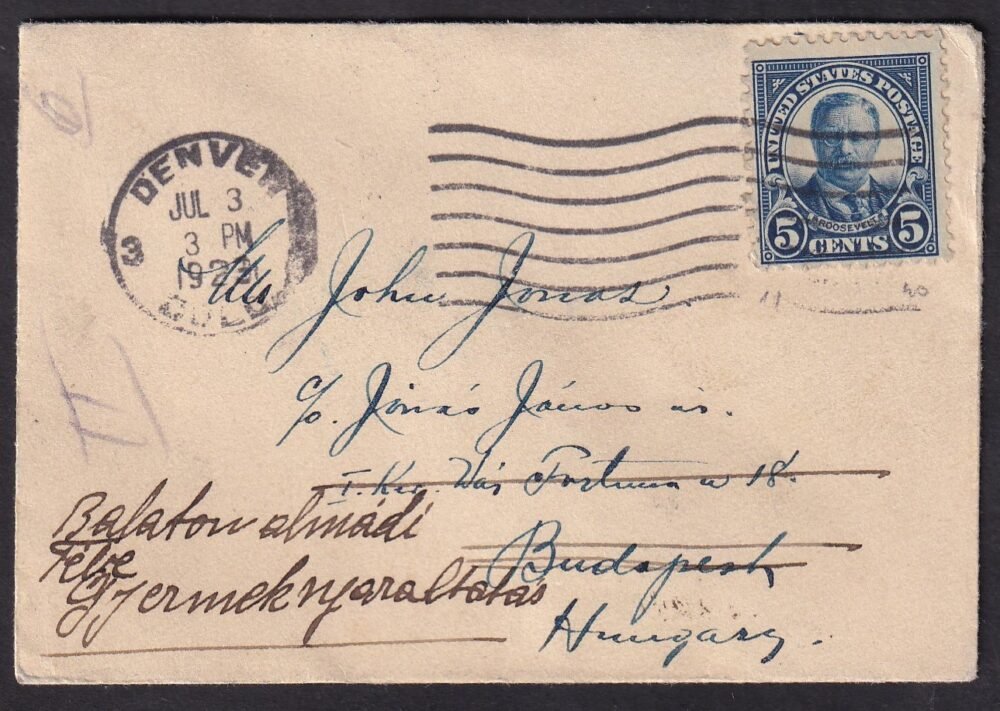 UNITED STATES POSTAGE
ROOSEVELT
5 CENTS 5
DENVER
JUL 3
3 PM
3
COLO.
John Jonas
c/o. Jónás János úr.
I. Ker. Vár Fortuna u 18.
Budapest
Hungary.
Balaton almádi
Félje
Gyermeknyaraltatás
40